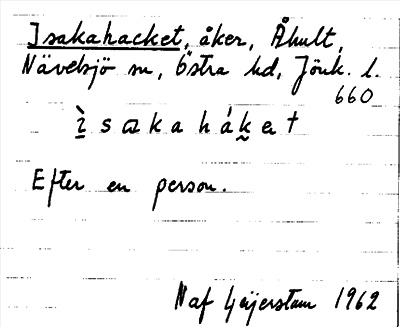 Isakahacket, åker, Åhult,
Nävelsjö sn, Östra hd, Jönk. l.
660
ì̲ s ɑ k a h á k̬ e t
Efter en person.
Naf Geijerstam 1962